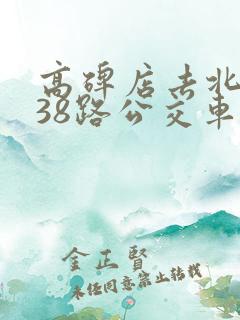 高碑店去北
38路公交車
金正賢
未经同意禁止转载